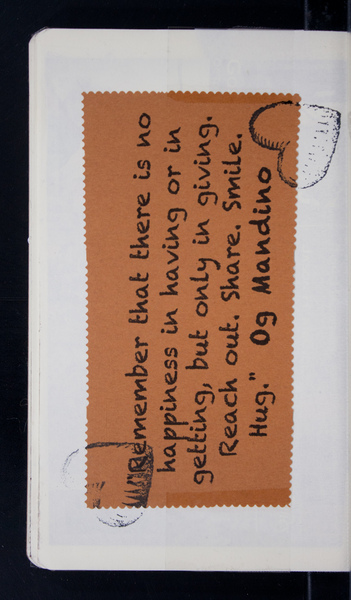 "Remember that there is no
happiness in having or in
getting, but only in giving.
Reach out. Share. Smile.
Hug." Og Mandino